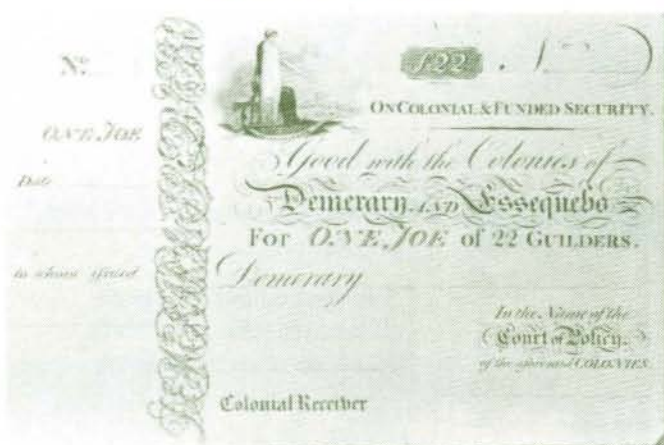 No.
ONE JOE
Date
to whom issued
ƒ22
ON COLONIAL & FUNDED SECURITY.
Good with the Colonies of
Demerary AND Essequebo
FOR ONE JOE of 22 GUILDERS.
Demerary
In the Name of the
Court of Policy.
of the aforesaid COLONIES.
Colonial Receiver